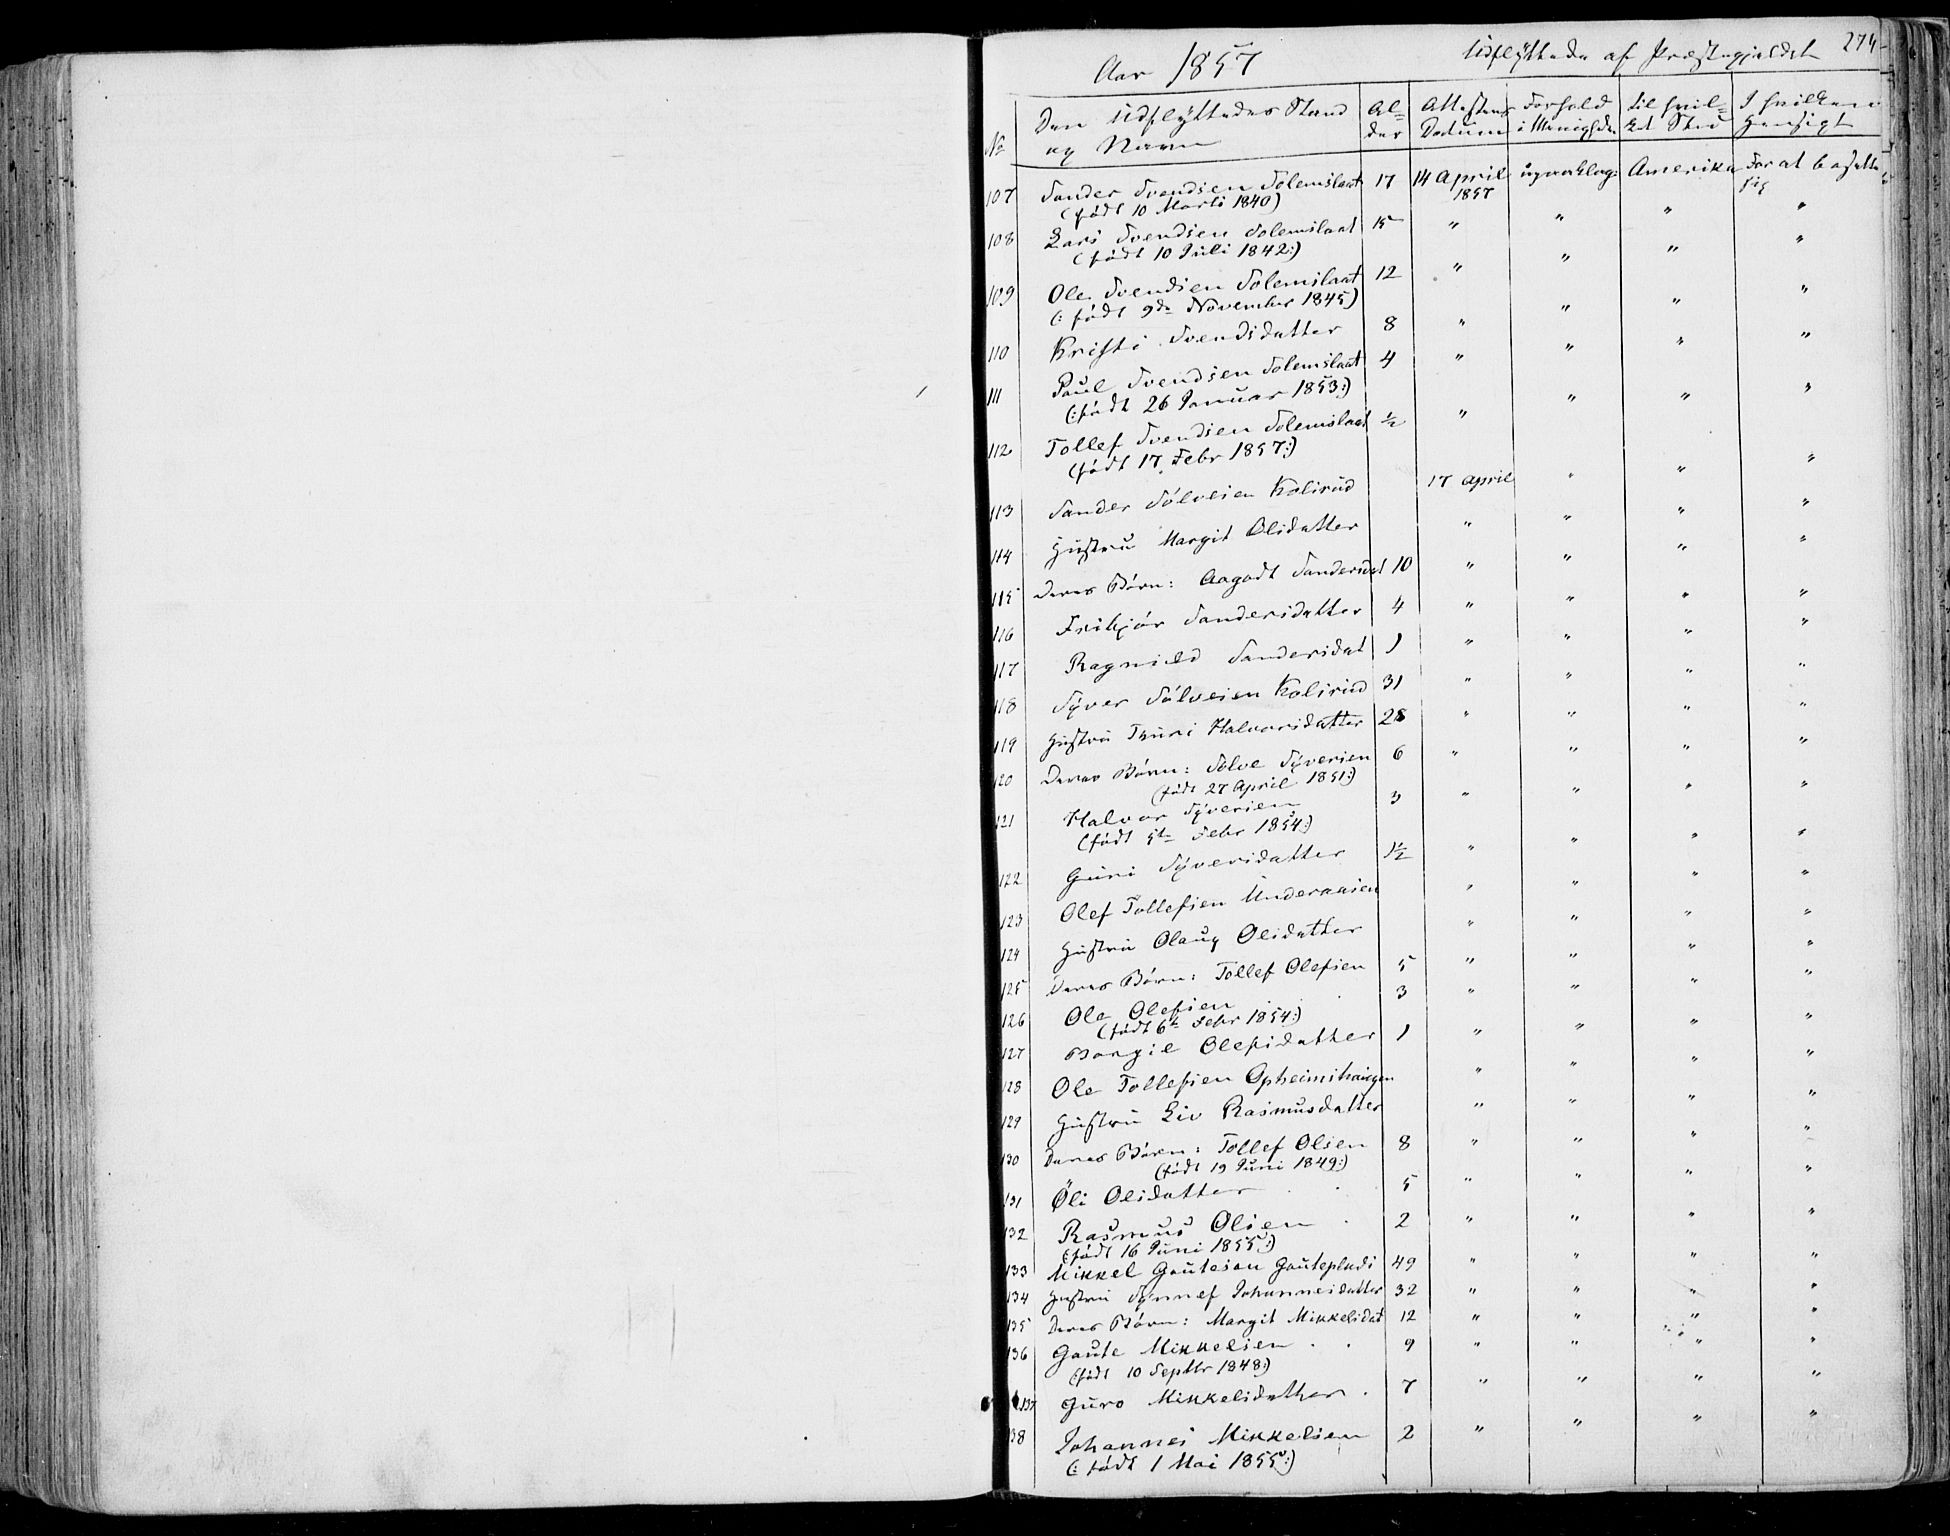 Aar 1857
Udflyttede af Præstegjeldet 274
No
Den Udflyttedes Stand og Navn
Al=der
Attestens Datum
Forhold i Menigheden
til hvil=ket Sted
I hvilken Hensigt
107 Sander Svendsen Solemslaat 17 14 April 1857 Amerika For at bosætte sig
(født 10 Marts 1840)
108 Lars Svendsen Solemslaat 15 " " " "
(født 10 Juli 1842:)
109 Ole Svendsen Solemslaat 12 " " " "
(: født 9de November 1845)
110 Kristi Svendsdatter 8 " " " "
111 Paul Svendsen Solemslaat 4 " " " "
(:født 26 Januar 1853:)
112 Tollef Svendsen Solemslaat ½ " " " "
(født 17 Febr 1857:)
113 Sander Sølvesen Kolsrud 17 April " " "
114 Hustru Margit Olsdatter " " " "
115 Deres Børn: Aagodt Sandersdat 10 " " " "
116 Sandersdatter 4 " " " "
117 Ragnild Sandersdat 1 " " " "
118 Syver Sølvesen Kolsrud 31 " " " "
119 Hustru Thuri Halvorsdatter 28 " " " "
120 Deres Børn: Sølve Syversen 6 " " " "
(født 27 April 1851:)
121 Halvor Syversen 3 " " " "
(født 5te Febr 1854:)
122 Guri Syversdatter 1½ " " " "
123 Olef Tollefsen Underaasen " " " "
124 Hustru Olaug Olsdatter " " " "
125 Deres Børn: Tollef Olefsen 5 " " " "
126 Ole Olefsen 3 " " " "
(født 6te Febr 1854:)
127 Bargil Olefsdatter 1 " " " "
128 Ole Tollefsen Opheimshaugen " " " "
129 Hustru Liv Rasmusdatter " " " "
130 Deres Børn: Tollef Olsen 8 " " " "
(født 19 Juni 1849:)
131 Øli Olsdatter 5 " " " "
132 Rasmus Olsen 2 " " " "
(:født 16 Juni 1855:)
133 Mikkel Goutesen Gouteplads 49 " " " "
134 Hustru Synnef Johannesdatter 32 " " " "
135 Deres Børn: Margit Mikkelsdat 12 " " " "
136 Goute Mikkelsen 9 " " " "
(født 10 Septbr 1848:)
137 Guro Mikkelsdatter 7 " " " "
138 Johannes Mikkelsen 2 " " " "
(: født 1 Mai 1855:)